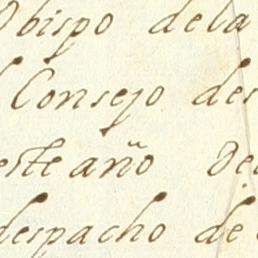 Obispo dela
Consejo de
este año De
despacho de